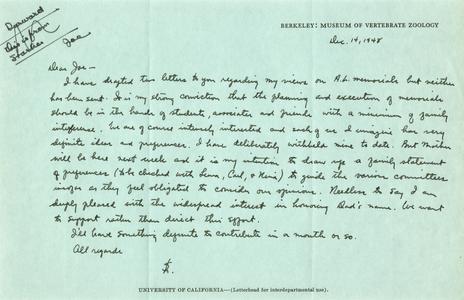 BERKELEY: MUSEUM OF VERTEBRATE ZOOLOGY
Dec. 14, 1948
this is from
Starker
Joe
Dear Joe—
I have drafted two letters to you regarding my views on A.L. memorials but neither
has been sent. It is my strong conviction that the planning and execution of memorials
should be in the hands of students, associates and friends with a minimum of family
interference. We are of course intensely interested and each of us I imagine has very
definite ideas and preferences. I have deliberately withheld mine to date. But Mother
will be here next week and it is my intention to draw up a family statement
of preferences (to be checked with Luna, Carl, & Nina) to guide the various committees
insofar as they feel obligated to consider our opinion. Needless to say I am
deeply pleased with the widespread interest in honoring Dad's name. We want
to support rather than direct this effort.
I'll have something definite to contribute in a month or so.
All regards
UNIVERSITY OF CALIFORNIA—(Letterhead for interdepartmental use).